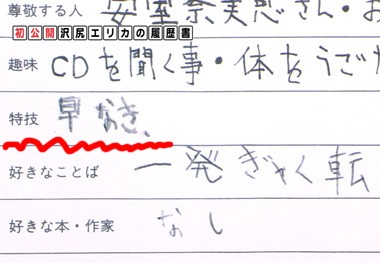 尊敬する人 安室奈美恵さん・お
初公開沢尻エリカの履歴書
趣味 CDを聞く事・体をうごか
特技 早なき、
好きなことば 一発ぎゃく転
好きな本・作家 なし